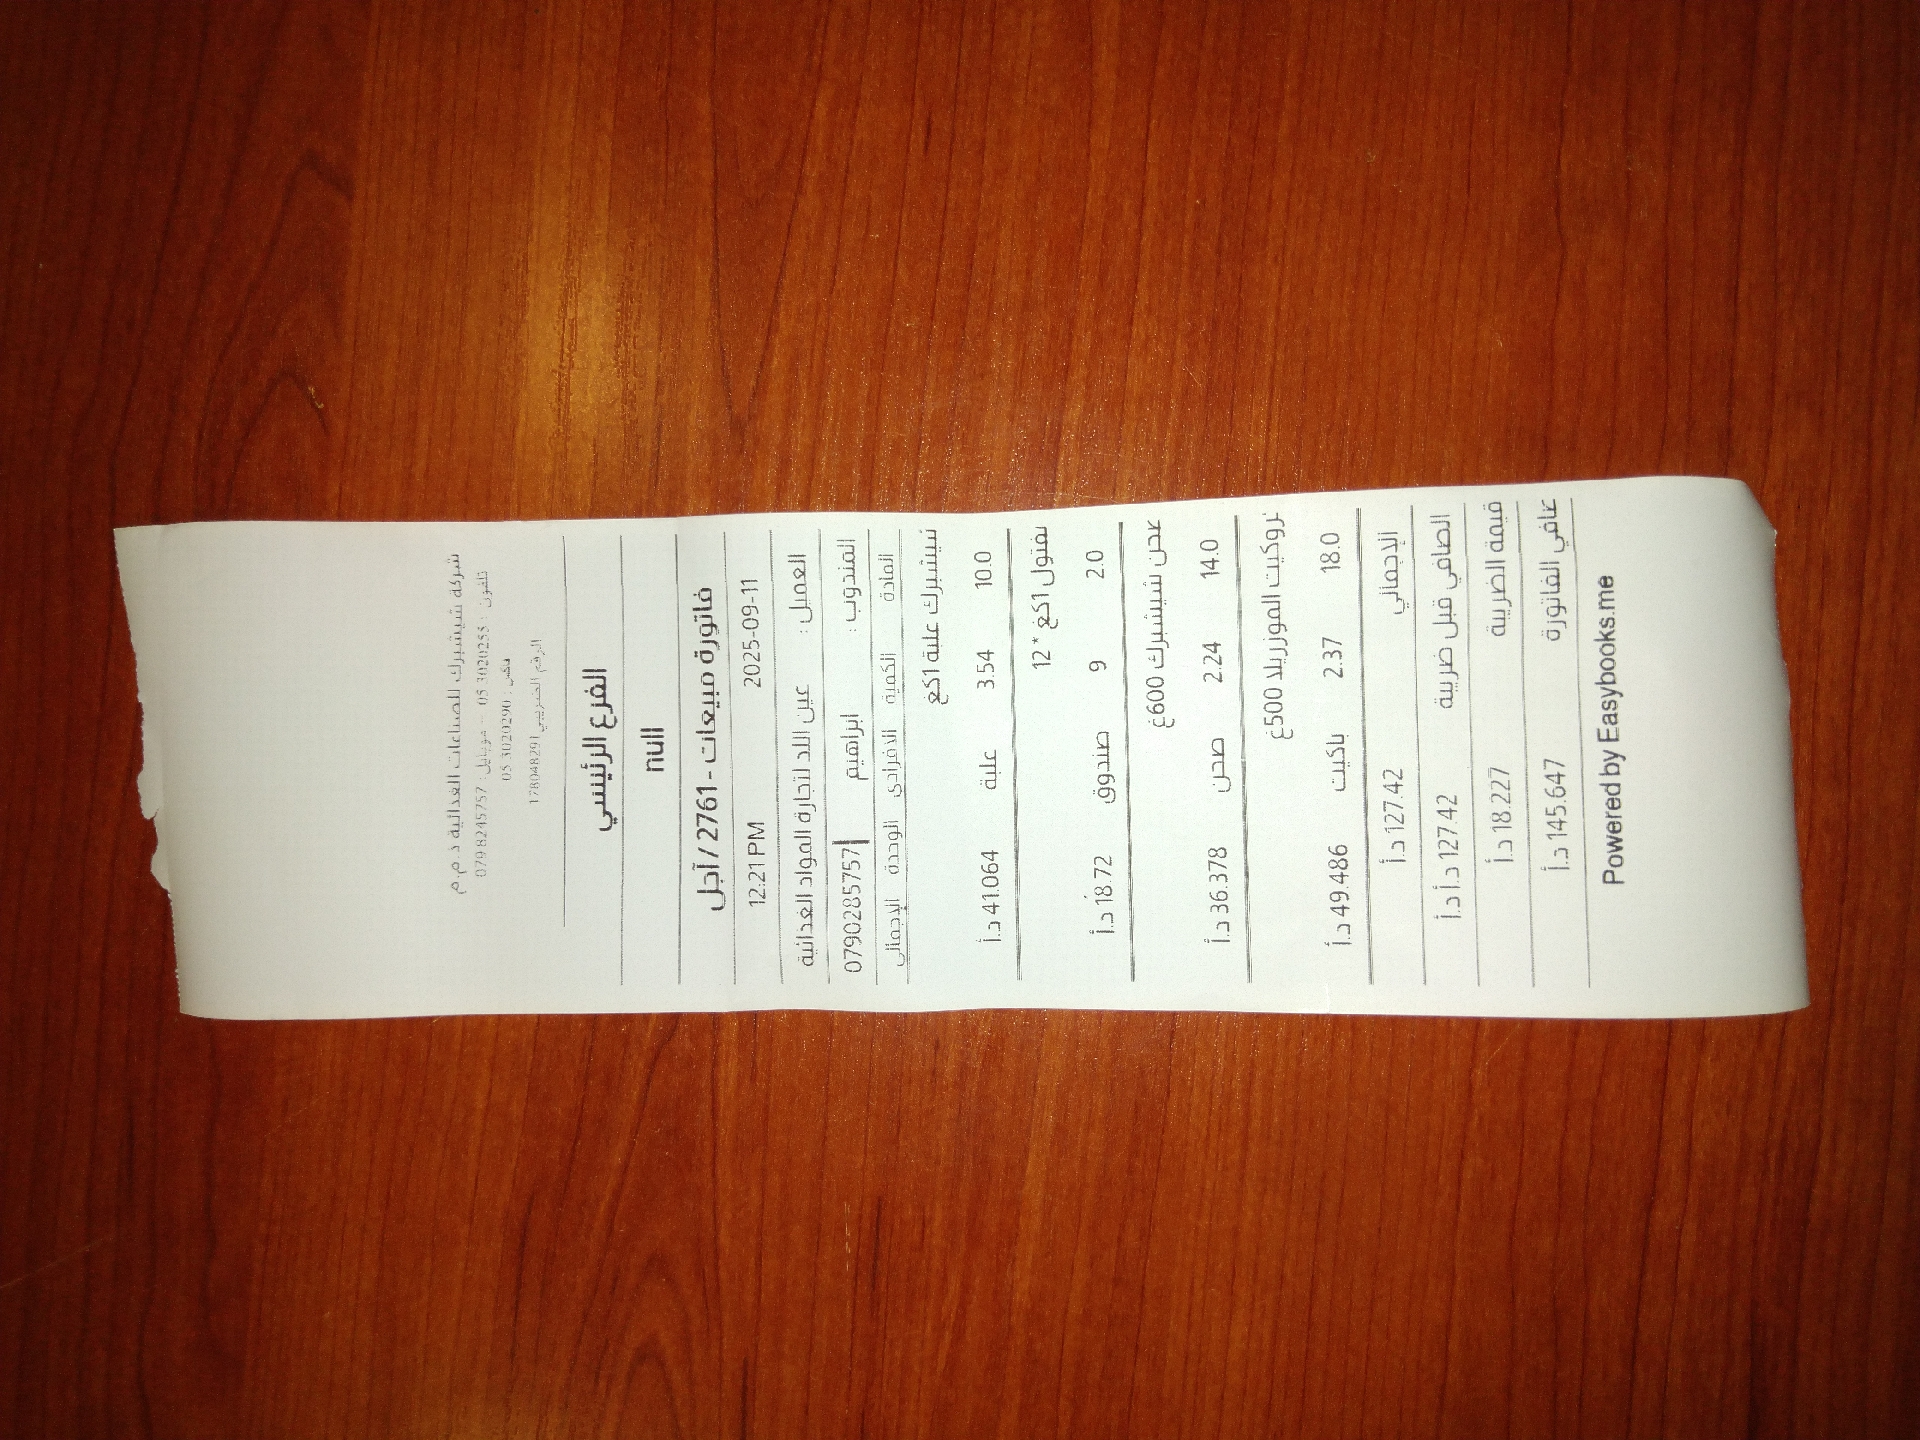 شركة شيشبرك للصناعات الغذائية ذ.م.م
تلفون : 05 3020255 - موبايل : 079 8245757
فاكس : 05 3020290
الرقم الضريبي 178048291
الفرع الرئيسي
null
فاتورة مبيعات - 2761 / آجل
2025-09-11 12:21 PM
العميل : عين اللد لتجارة المواد الغذائية
المندوب : ابراهيم 0790285757
المادة الكمية الافرادي الوحدة الإجمالي
شيشبرك علبة 1كغ
10.0 3.54 علبة 41.064 د.أ
مفتول 1كغ * 12
2.0 9 صندوق 18.72 د.أ
صحن شيشبرك 600غ
14.0 2.24 صحن 36.378 د.أ
الموزريلا 500غ
18.0 2.37 باكيت 49.486 د.أ
الإجمالي 127.42 د.أ
الصافي قبل ضريبة 127.42 د.أ د.أ
قيمة الضريبة 18.227 د.أ
صافي الفاتورة 145.647 د.أ
Powered by Easybooks.me